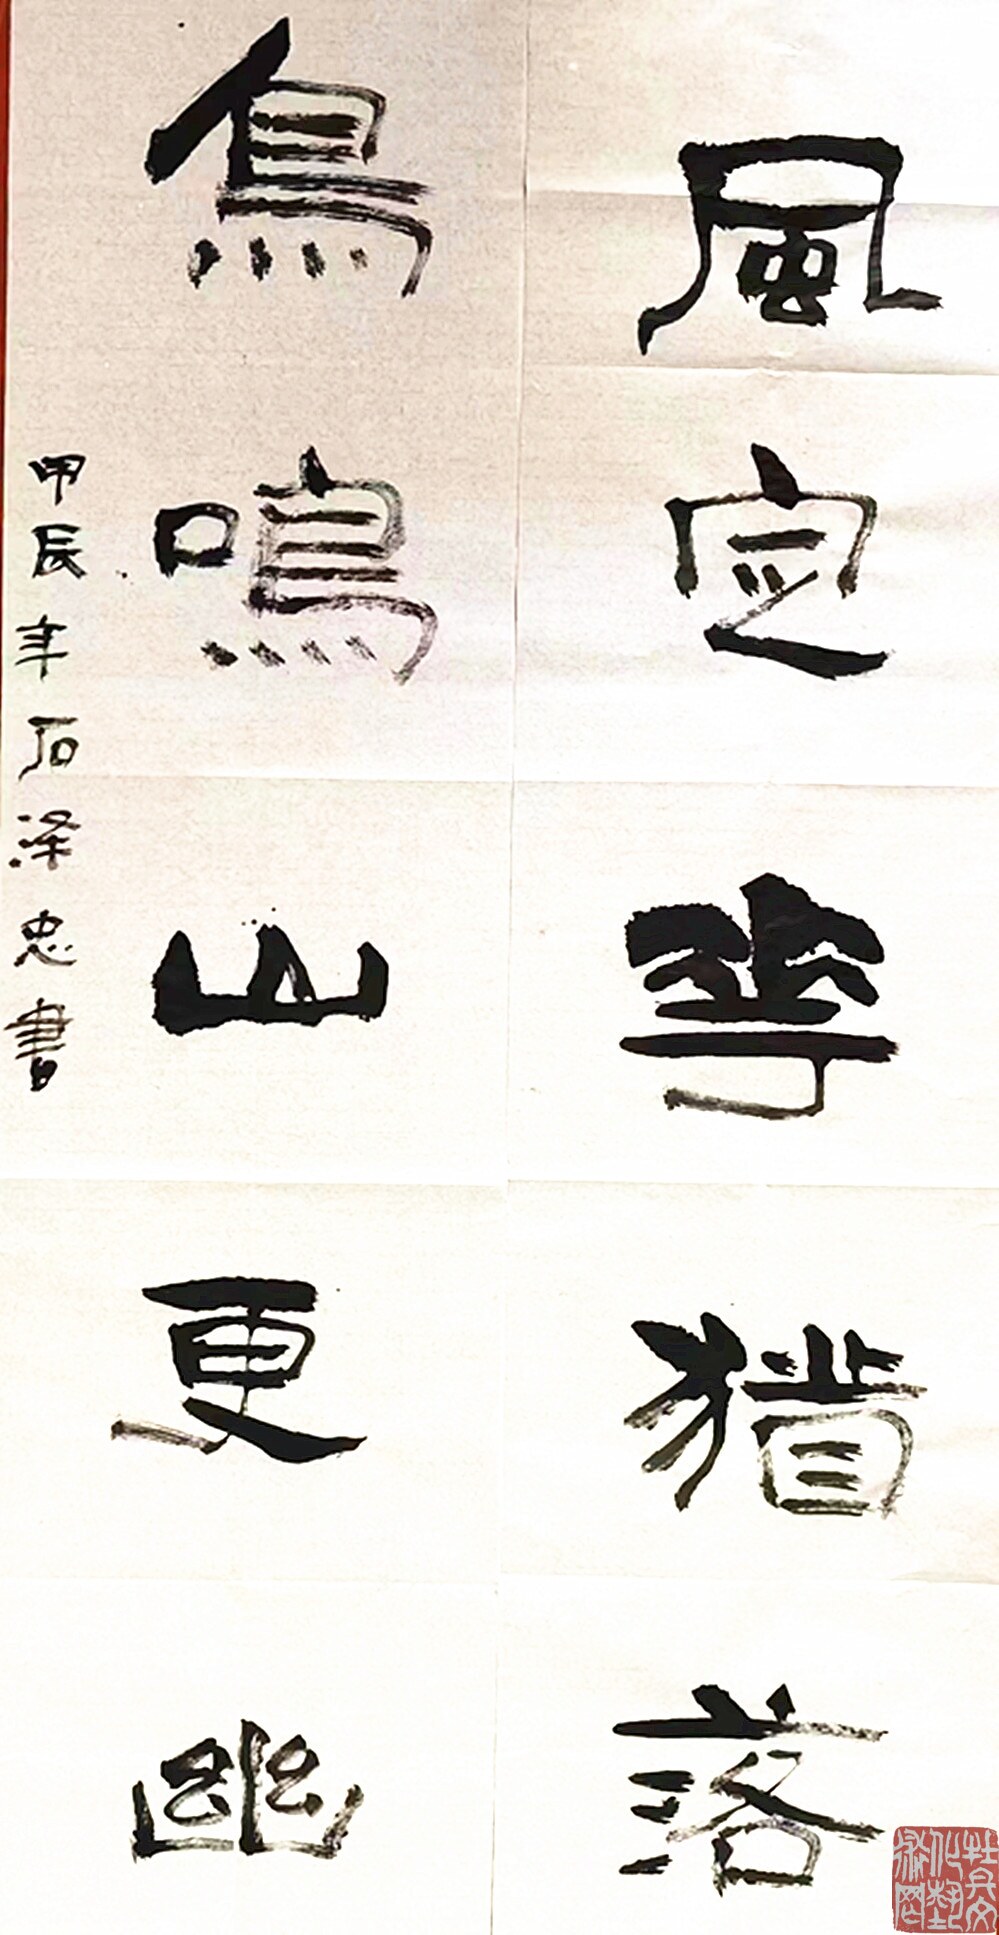 風定花猶落
鳥鳴山更幽
甲辰年石泽忠書